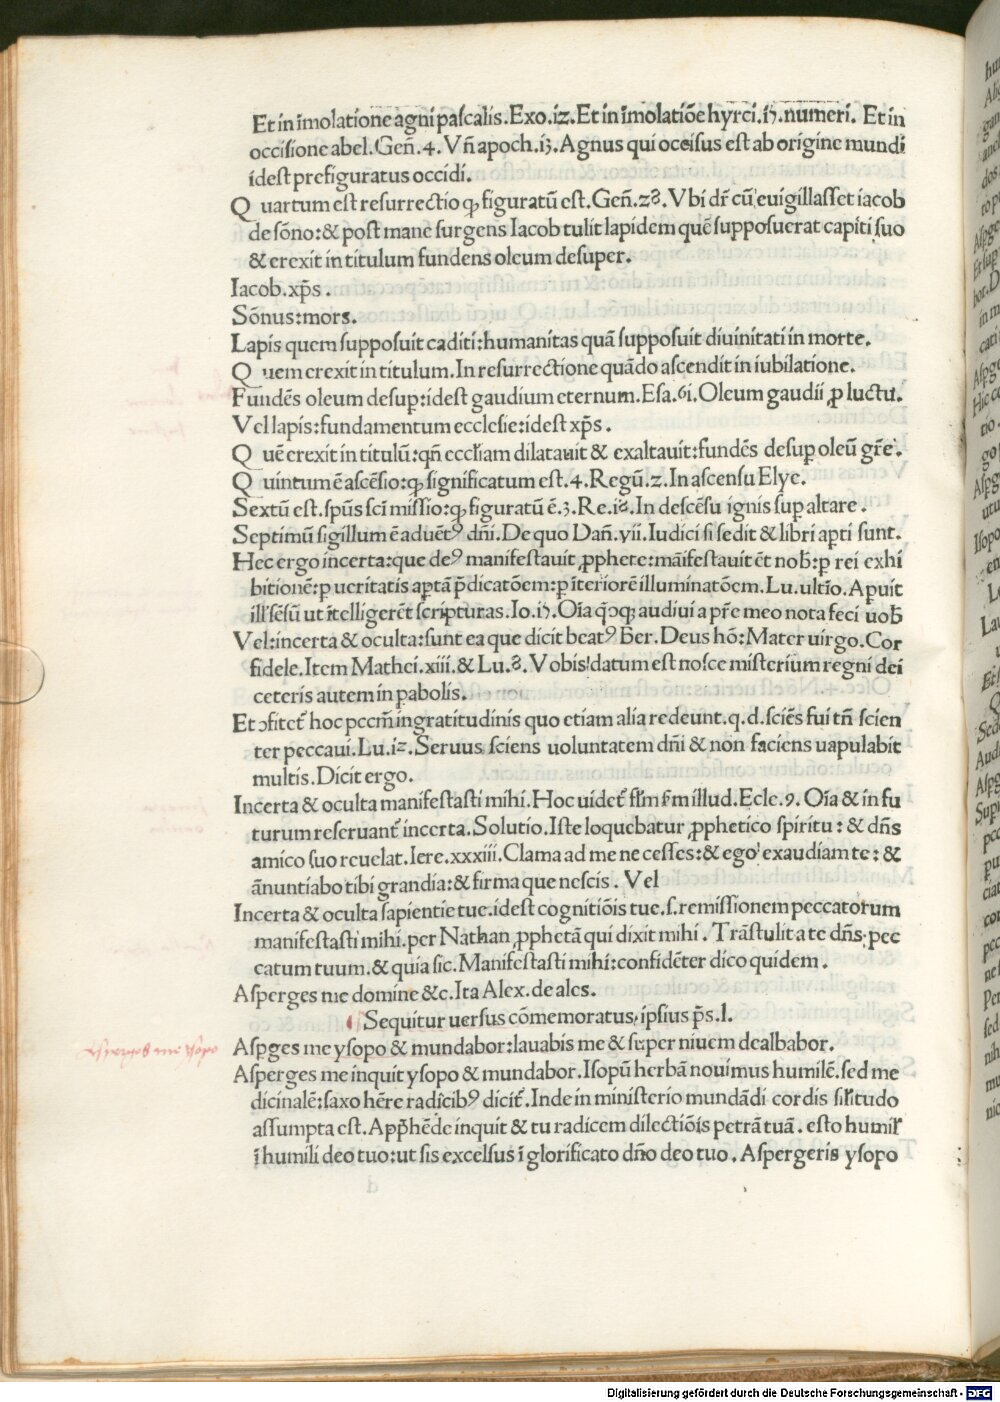 Et in īmolatione agni paſcalis.Exo.iz.Et in īmolatiōe hyrci.i7.numeri. Et in
occiſione abel.Geñ.4.Vñ apoch.i3.Agnus qui occiſus eſt ab origine mundi
ideſt prefiguratus occidi.
Q uartum eſt reſurrectio ꝙ figuratū eſt.Geñ.z8.Vbi dr̄ cū euigillaſſet iacob
de ſōno:& poſt mane ſurgens Iacob tulit lapidem quē ſuppoſuerat capiti ſuo
& erexit in titulum fundens oleum deſuper.
Iacob.xp̄s.
Sōnus:mors.
Lapis quem ſuppoſuit caditi:humanitas quā ſuppoſuit diuinitati in morte.
Q uem erexit in titulum.In reſurrectione quādo aſcendit in iubilatione.
Fundēs oleum deſuꝑ:ideſt gaudium eternum.Eſa.61.Oleum gaudii ꝓ luctu.
Vel lapis:fundamentum eccleſie:ideſt xp̄s.
Q uē erexit in titulū:qñ eccłiam dilatauit & exaltauit:fundēs deſuꝑ oleū gr̄e.
Q uintum ē aſcēſio:ꝙ ſignificatum eſt.4.Regū.z.In aſcenſu Elye.
Sextū eſt.ſpūs ſcī miſſio:ꝙ figuratū ē.3.Re.i8.In deſcēſu ignis ſuꝑ altare.
Septimū ſigillum ē aduēt⁹ dñi.De quo Dañ.vii.Iudici ſi ſedit & libri aꝑti ſunt.
Hec ergo incerta:que de⁹ manifeſtauit ꝓphete:māifeſtauit ēt nob̄:ꝑ rei exhi
bitionē:ꝑ ueritatis aꝑtā p̄dicatōem:ꝑ īteriorē illuminatōem.Lu.ultīo.Aꝑuit
ill̄ ſēſū ut ītelligerēt ſcripturas.Io.i7.Oīa q̄cōq; audiui a pr̄e meo nota feci uob̄
Vel:incerta & oculta:ſunt ea que dicit beat⁹ Ber̄.Deus hō:Mater uirgo.Cor
fidele.Item Mathei.xiii.& Lu.8.Vobis datum eſt noſce miſterium regni dei
ceteris autem in ꝑabolis.
Et ↄfitet̄ hoc pccm̄ ingratitudinis quo etiam alia redeunt.q.d.ſciēs fui tñ ſcien
ter peccaui.Lu.iz.Seruus ſciens uoluntatem dñi & non faciens uapulabit
multis.Dicit ergo.
Incerta & oculta manifeſtaſti mihi.Hoc uidet̄ fl̄m ſ̄m illud.Ecle.9.Oīa & in fu
turum reſeruant̄ incerta.Solutio.Iſte loquebatur ꝓphetico ſpiritu:& dñs
amico ſuo reuelat.Iere.xxxiii.Clama ad me ne ceſſes:& ego exaudiam te:&
āñuntiabo tibi grandia:& firma que neſcis. Vel
Incerta & oculta ſapientie tue.ideſt cognitiōis tue.ſ.remiſſionem peccatorum
manifeſtaſti mihi.per Nathan ꝓphetā qui dixit mihi. Trāſtulit a te dñs pec
catum tuum.& quia ſic.Manifeſtaſti mihi:confidēter dico quidem.
Aſperges me domine &c.Ita Alex.de ales.
Sequitur uerſus cōmemoratus ipſius p̄s.l.
Aſꝑges me yſopo & mundabor:lauabis me & ſuper niuem dealbabor.
Aſperges me yſopo
Aſperges me inquit yſopo & mundabor.Iſopū herbā nouimus humilē.ſed me
dicinalē:ſaxo hēre radicib⁹ dicit̄.Inde in miniſterio mundādi cordis ſiľitudo
aſſumpta eſt.App̄hēde inquit & tu radicem dilectiōis petrā tuā. eſto humiľ
ī humili deo tuo:ut ſis excelſus ī glorificato dño deo tuo. Aſpergeris yſopo
Digitalisierung gefördert durch die Deutsche Forschungsgemeinschaft - DFG